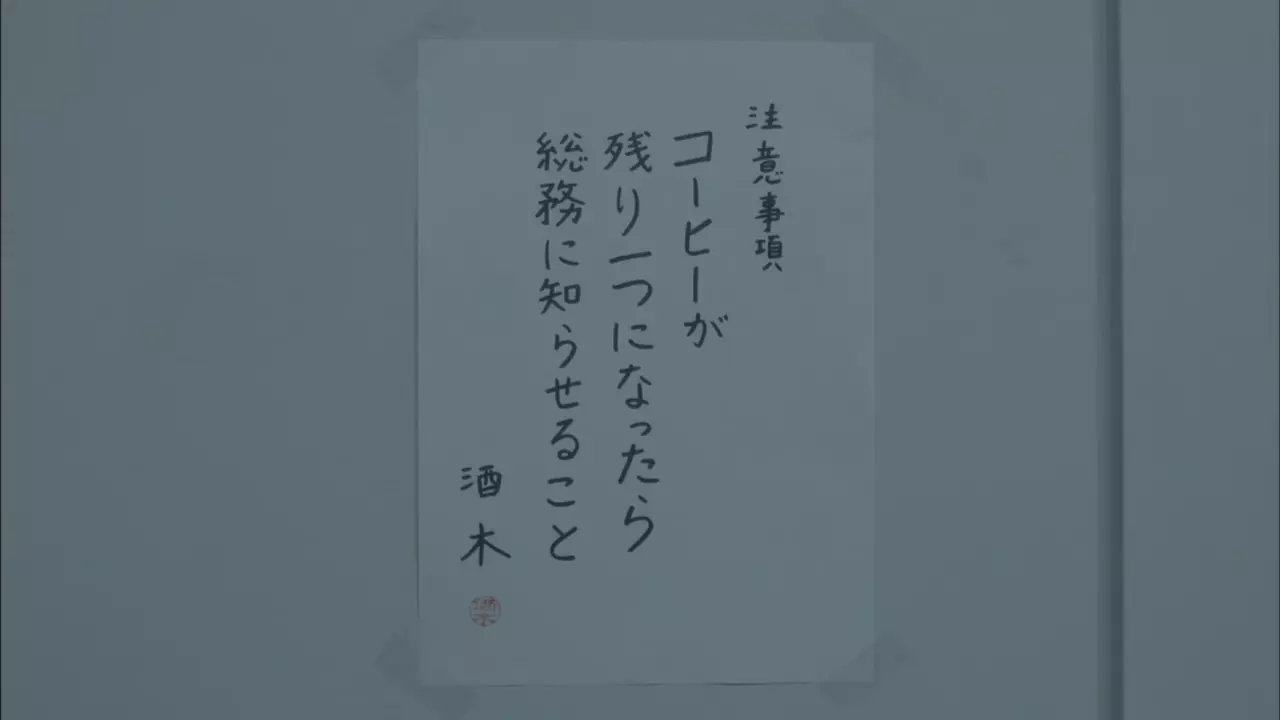 注意事項
コーヒーが
残り一つになったら
総務に知らせること
酒木